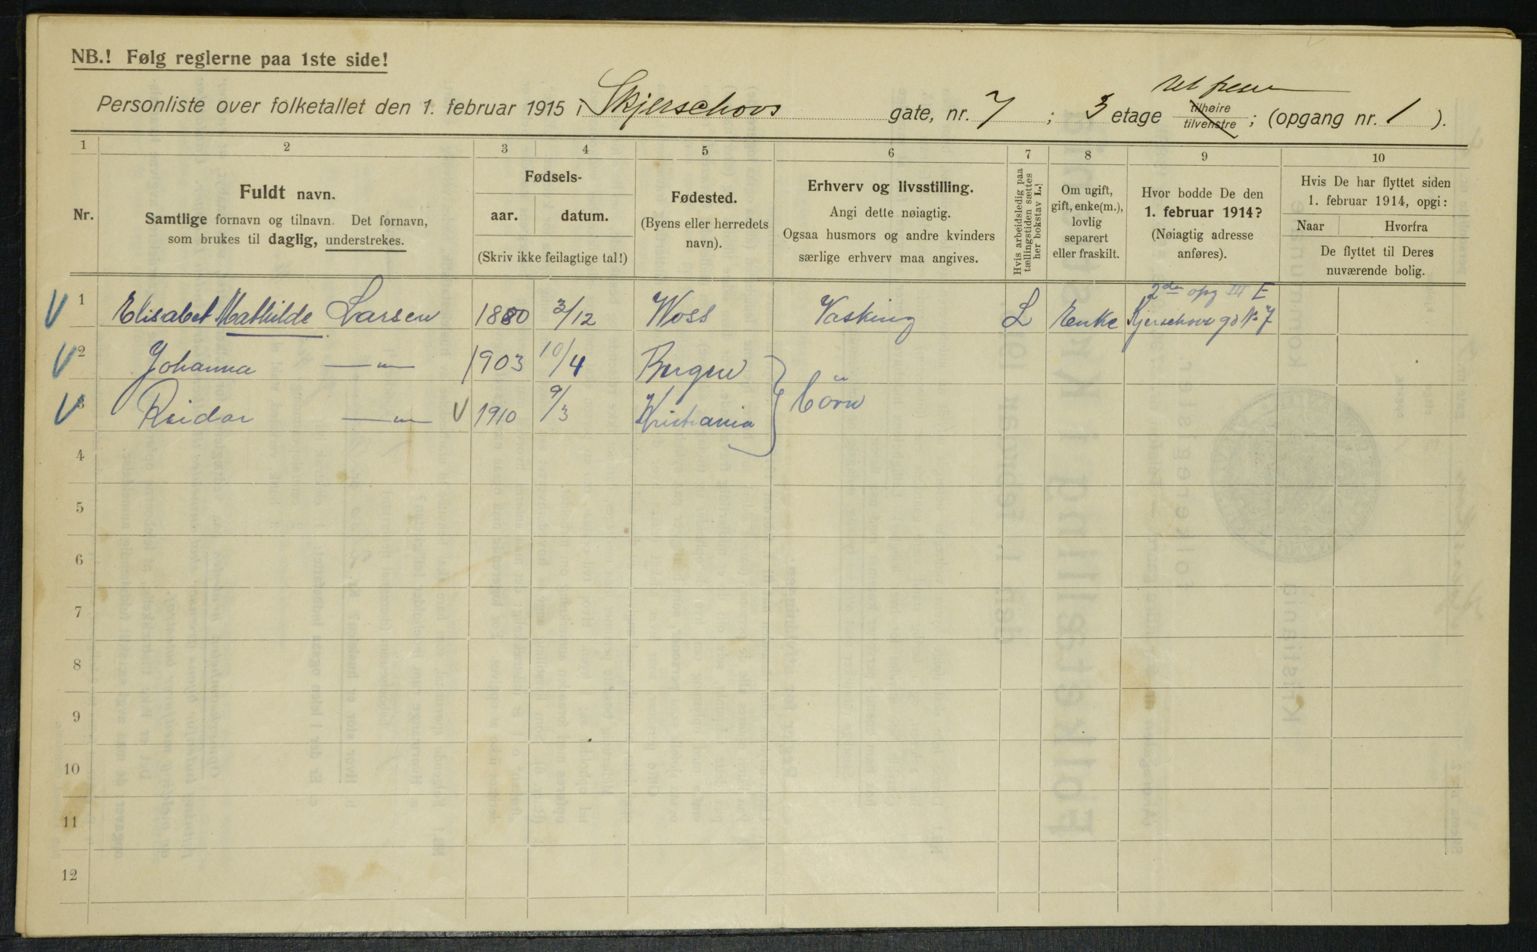 NB.! Følg reglerne paa 1ste side!
Personliste over folketallet den 1. februar 1915 i Skjerschovs gate, nr. 7 ; 3 etage tilhøire tilvenstre ; (opgang nr. 1 ).
1 2 3 4 5 6 7 8 9 10
Nr.
Fuldt navn.
Samtlige fornavn og tilnavn. Det fornavn,
som brukes til daglig, understrekes.
Fødsels-
aar. datum.
(Skriv ikke feilagtige tal!)
Fødested.
(Byens eller herredets
navn).
Erhverv og livsstilling.
Angi dette nøiagtig.
Ogsaa husmors og andre kvinders
særlige erhverv maa angives.
Hvis arbeidsledig paa
tællingstiden sættes
her bokstav L.)
Om ugift,
gift, enke(m.),
lovlig
separert
eller fraskilt.
Hvor bodde De den
1. februar 1914?
(Nøiagtig adresse
anføres).
Hvis De har flyttet siden
1. februar 1914, opgi:
Naar Hvorfra
De flyttet til Deres
nuværende bolig.
2den opg III E
V 1 Elisabet Mathilde Larsen 1880 3/12 Woss Vasking L Enke Kjerschows gd No 7
V 2 Johanna —„— 1903 10/4 Bergen
V 3 Reidar —„— V 1910 9/3 Kristiania } Börn
4
5
6
7
8
9
10
11
12